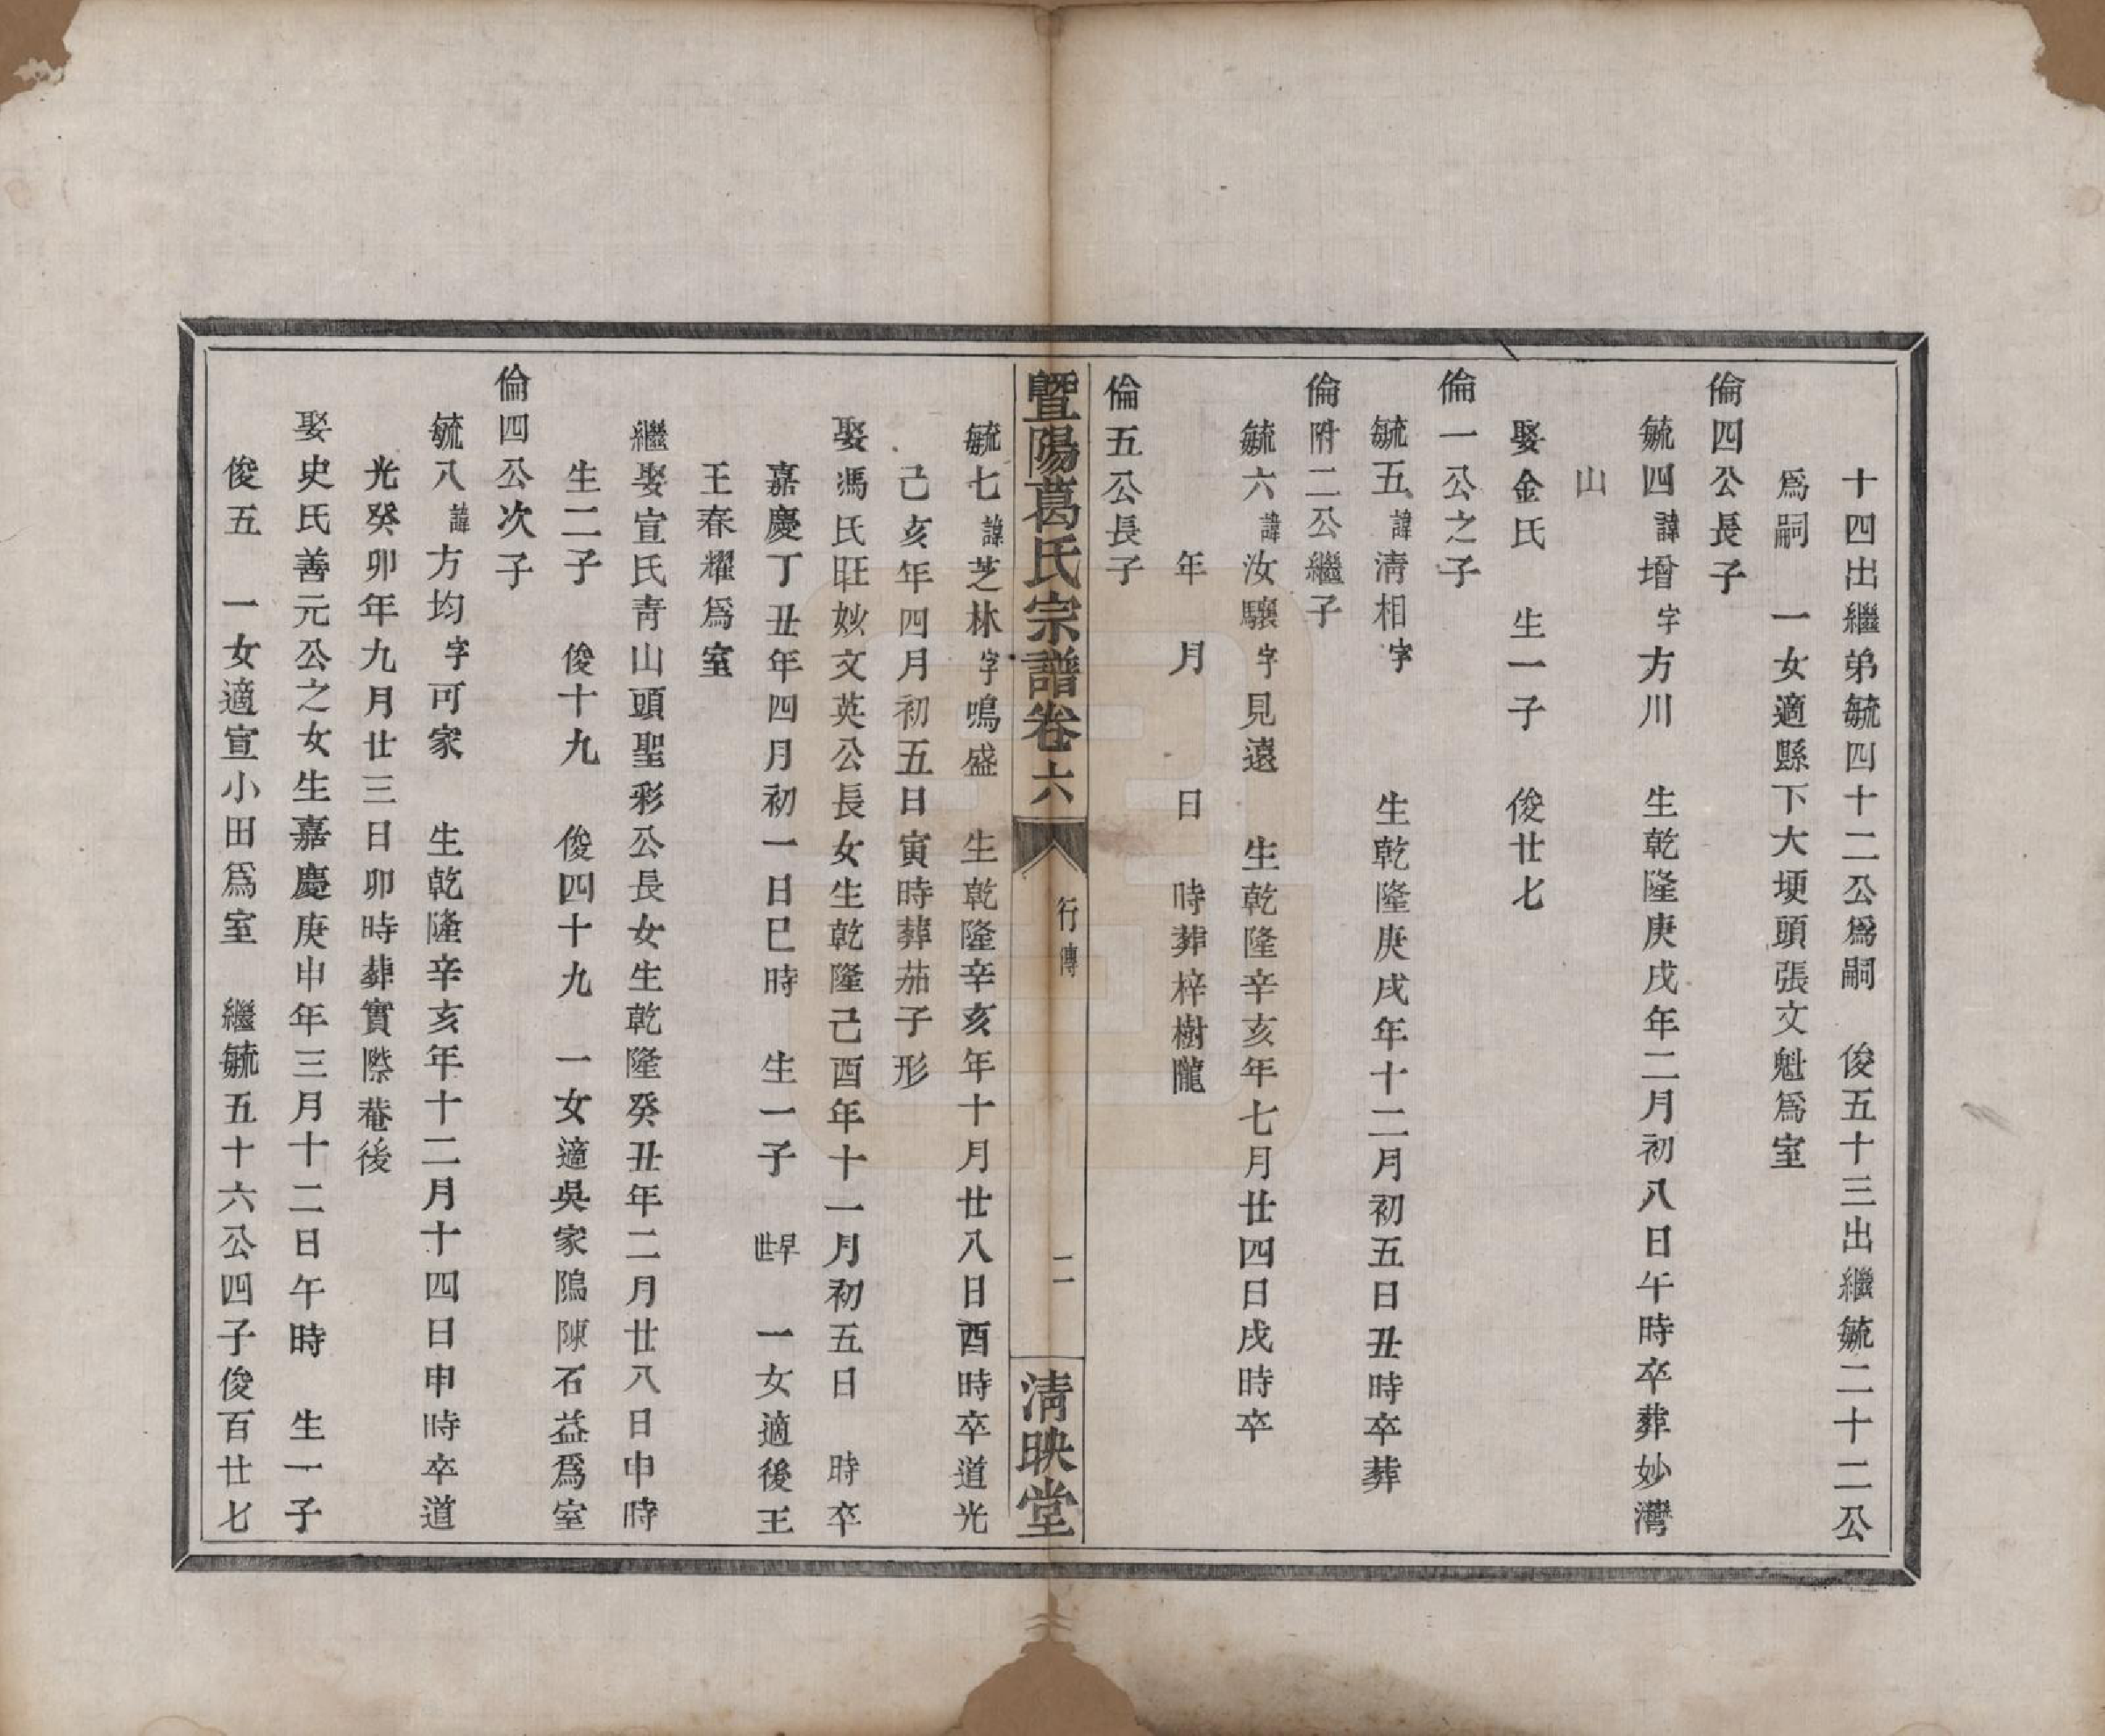 十四出繼弟毓四十二公爲嗣　俊五十三出繼毓二十二公
爲嗣　一女適縣下大埂頭張文魁爲室
倫四公長子
毓四諱增字方川　生乾隆庚戌年二月初八日午時卒葬妙灣
山
娶金氏　生一子　俊廿七
倫一公之子
毓五諱清相字　　生乾隆庚戌年十二月初五日丑時卒葬
倫附二公繼子
毓六諱汝驤字見遠　生乾隆辛亥年七月廿四日戌時卒
年　月　　日　時葬梓樹隴
倫五公長子
暨陽葛氏宗譜卷六　行傳　二　清映堂
毓七諱芝林字鳴盛　生乾隆辛亥年十月廿八日酉時卒道光
己亥年四月初五日寅時葬茄子形
娶馮氏旺妙文英公長女生乾隆己酉年十一月初五日　時卒
嘉慶丁丑年四月初一日巳時　生一子　早世　一女適後王
王春耀爲室
繼娶宣氏青山頭聖彩公長女生乾隆癸丑年二月廿八日申時
生二子　俊十九　俊四十九　一女適吳家隖陳石益爲室
倫四公次子
毓八諱方均字可家　生乾隆辛亥年十二月十四日申時卒道
光癸卯年九月廿三日卯時葬實際菴後
娶史氏善元公之女生嘉慶庚申年三月十二日午時　生一子
俊五　一女適宣小田爲室　繼毓五十六公四子俊百廿七